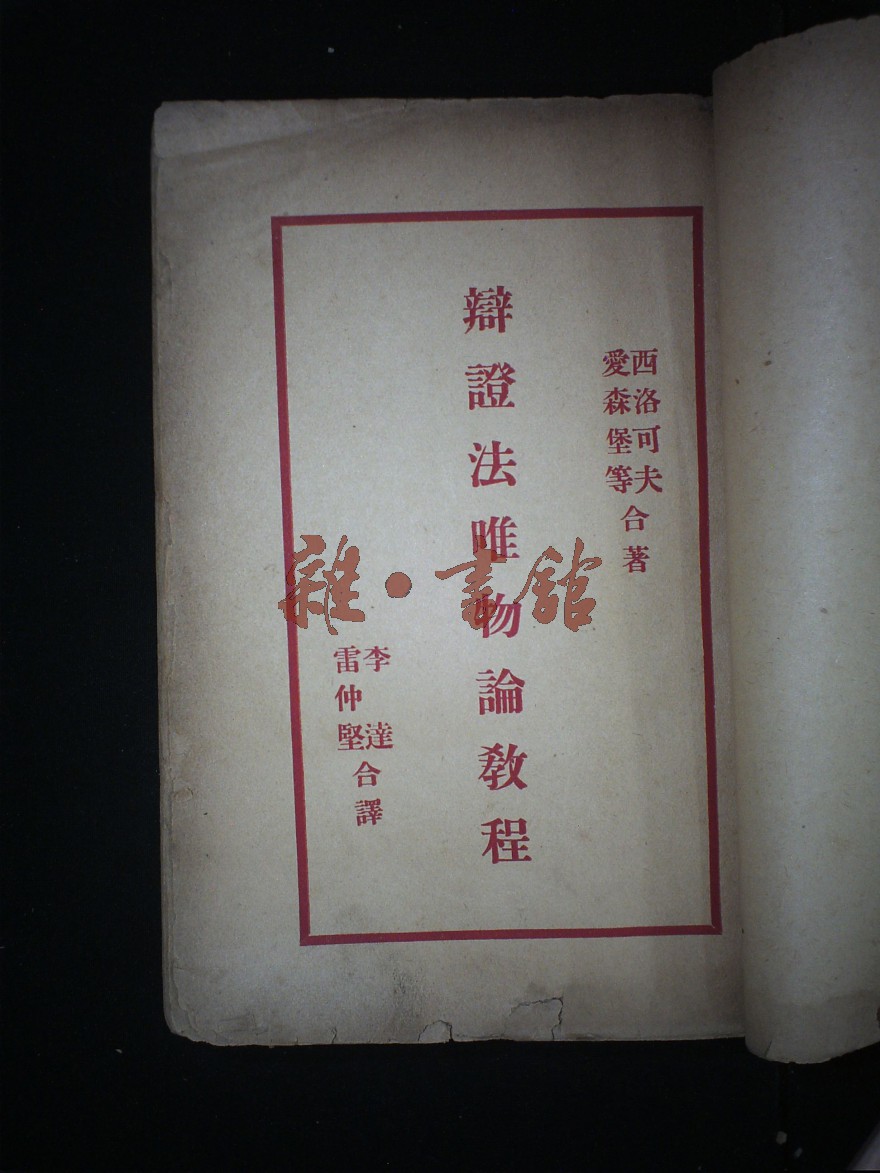 西洛可夫
愛森堡等
合著
辯證法唯物論教程
李達
雷仲堅
合譯
雜·書館